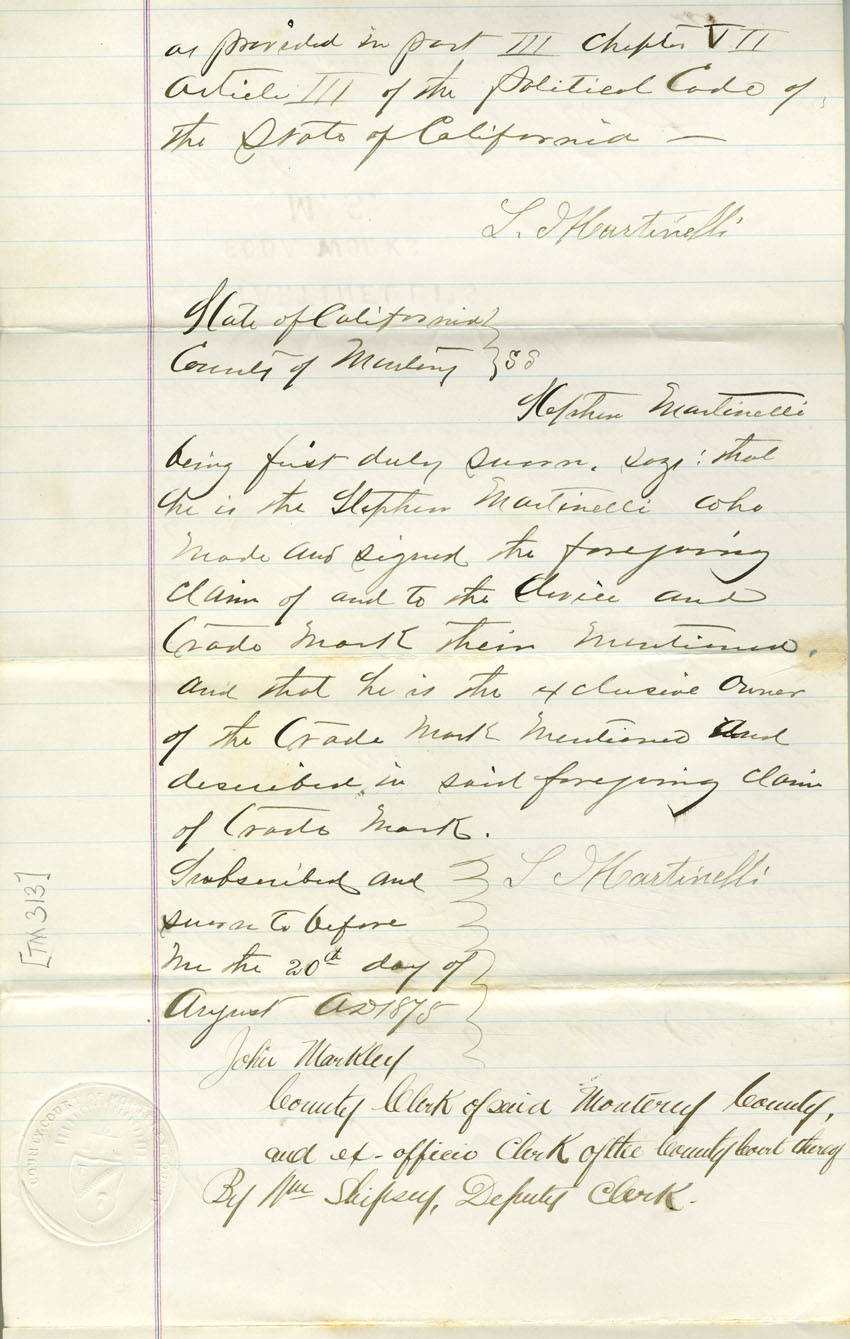 as provided in part III Chapter VII
Article III of the Political Code of
the State of California —
S. Martinelli
State of California }
County of Monterey } SS
Stephen Martinelli
being first duly sworn, says: that
he is the Stephen Martinelli who
made and signed the foregoing
claim of and to the device and
Trade Mark therin mentioned.
and that he is the exclusive owner
of the Trade Mark mentioned and
described in said foregoing claim
of Trade Mark.
Subscribed and S. Martinelli
sworn to before
me the 20th day of
August AD 1878
John Markley
County Clerk of said Monterey County,
and ex-officio Clerk of the County Court thereof
By Wm Shipsey, Deputy Clerk.
[TM 313]